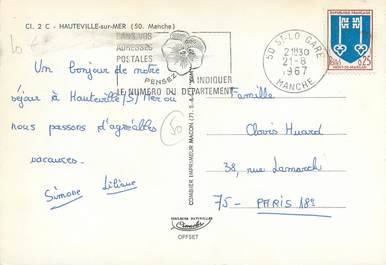 Cl. 2 C - HAUTEVILLE-sur-MER (50. Manche)
DANS VOS
ADRESSES
POSTALES
PENSEZ
A INDIQUER
LE NUMERO DU DEPARTEMENT
50 ST-LO GARE
21H30
21-8
1967
MANCHE
REPUBLIQUE FRANCAISE
0,25
MONT-DE-MARSAN
Un bonjour de notre
séjour à Hauteville/S/Mer ou
nous passons d'agréables
vacances.
Simone Liliane
50
COMBIER IMPRIMEUR MACON
Famille
Clovis Huard
38, rue Lamarck
75 - PARIS 18e
Cimachr
OFFSET